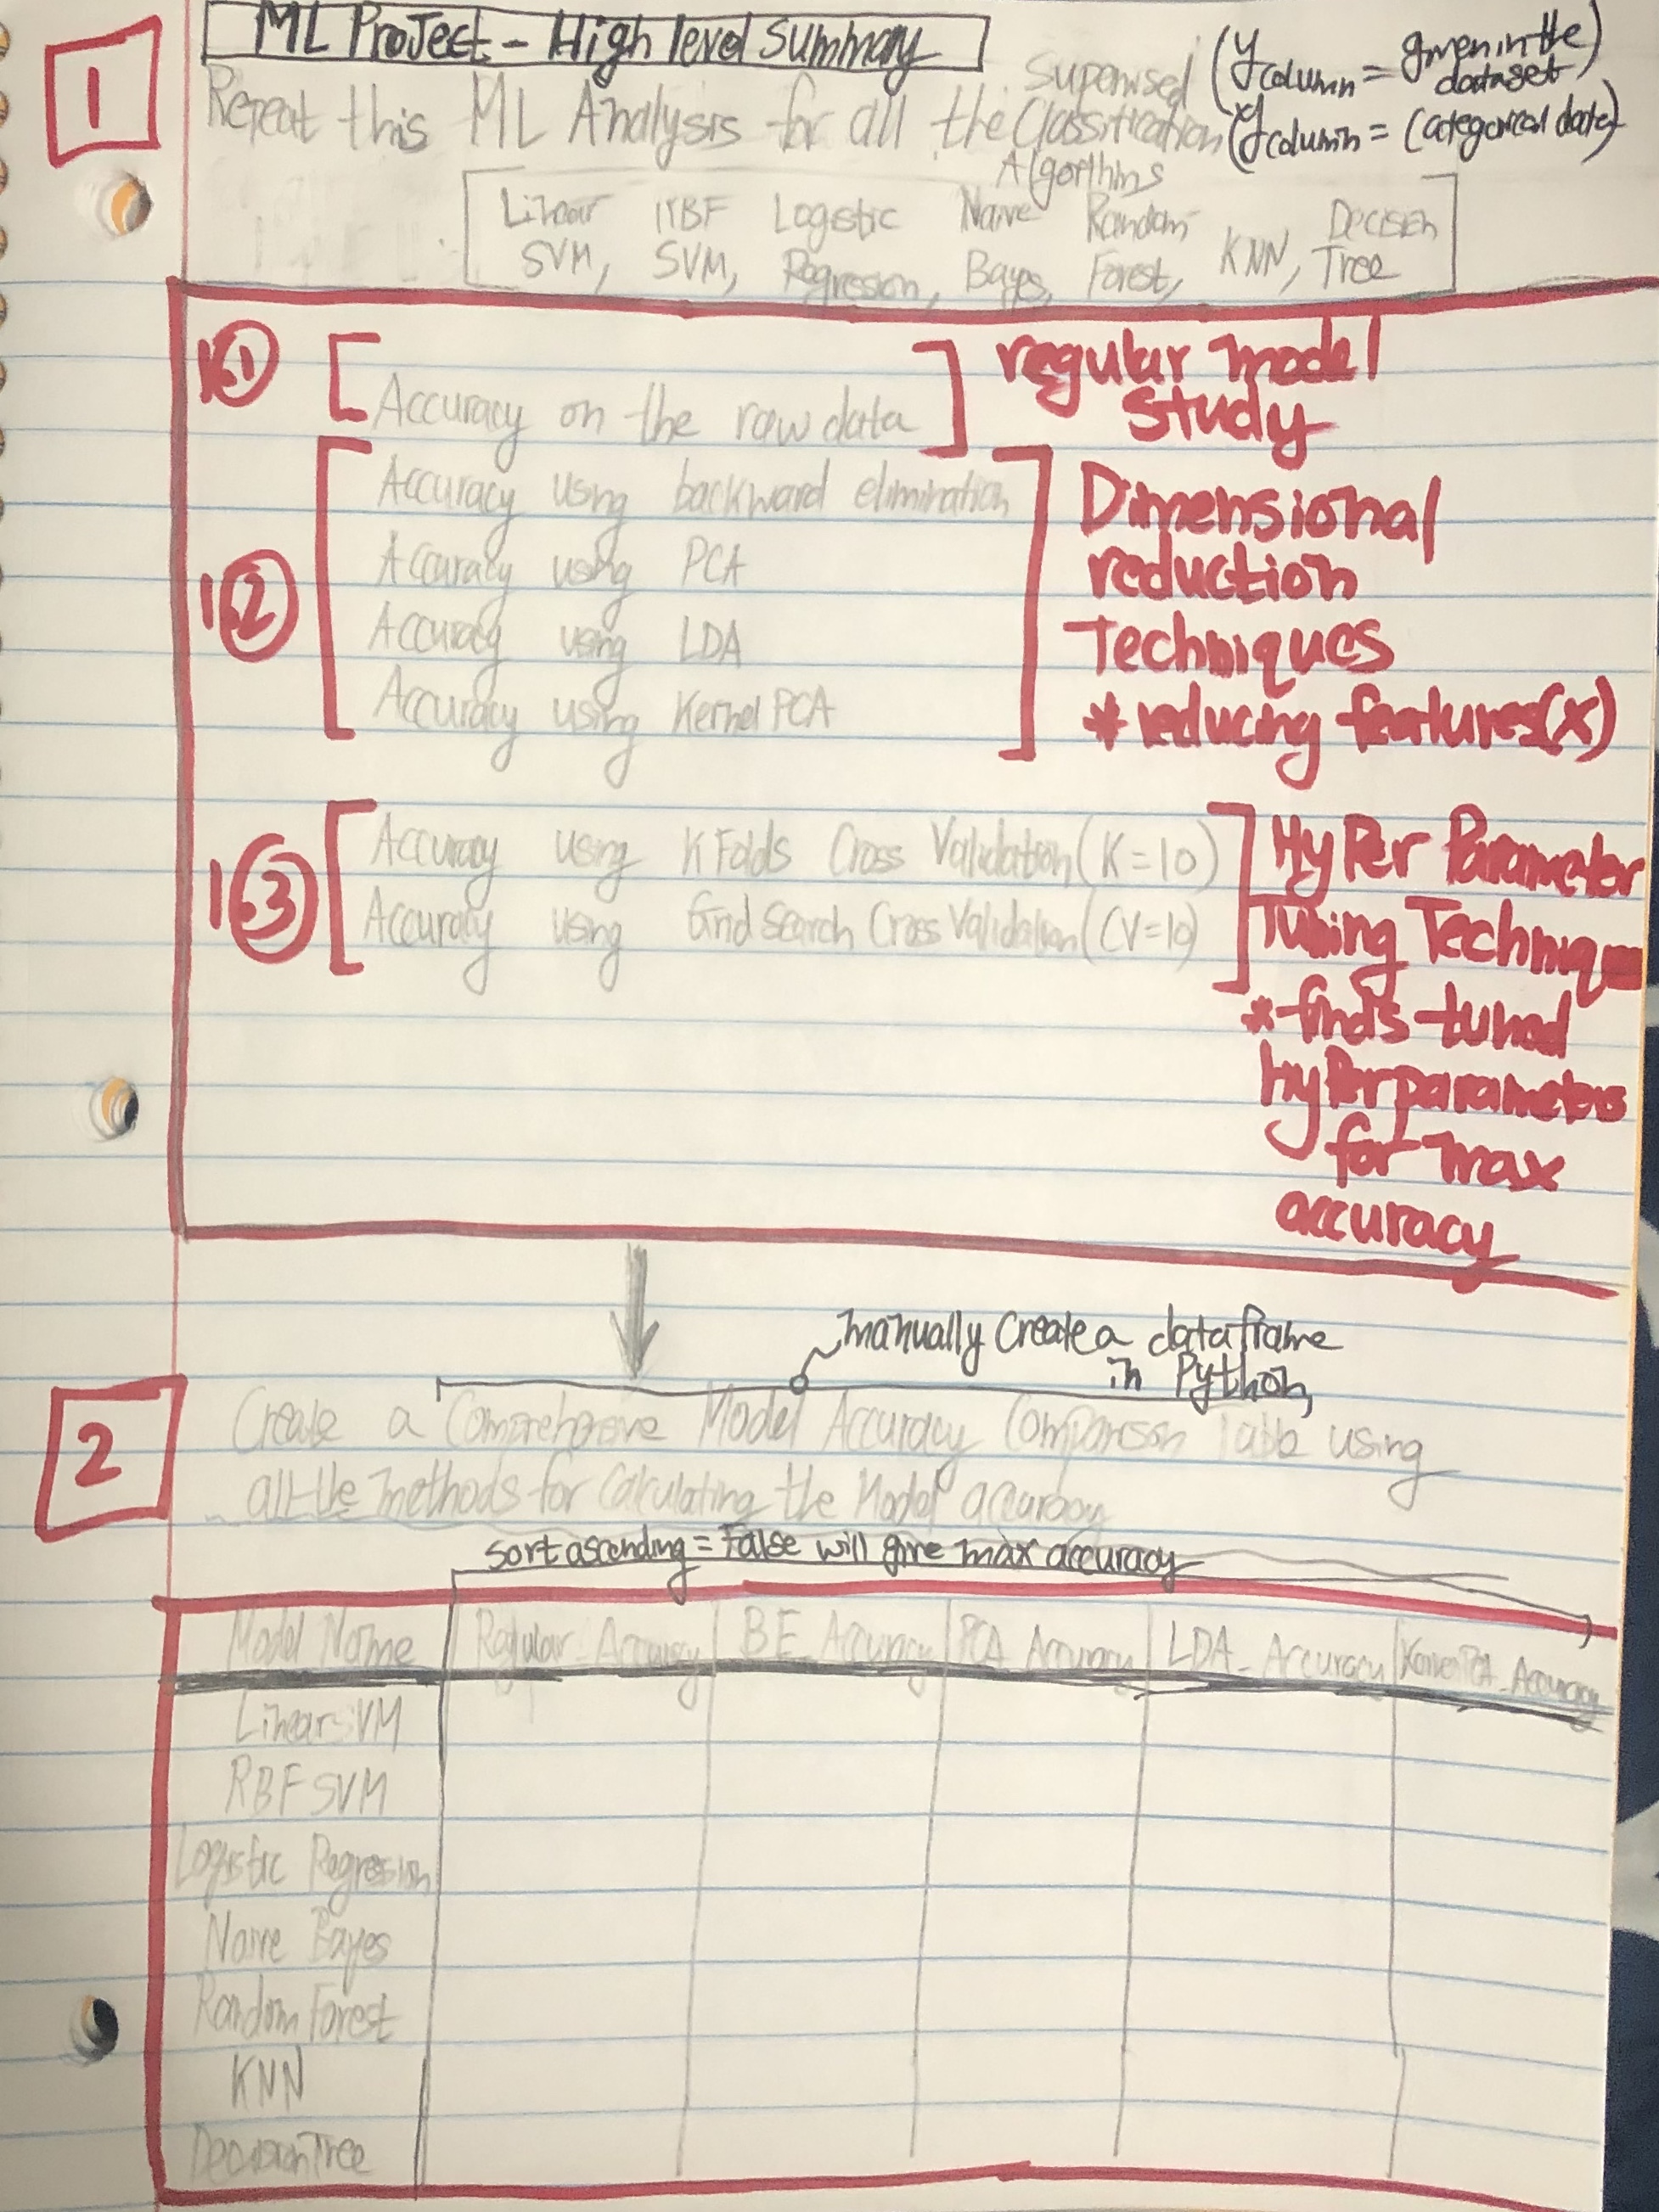 1
ML Project - High level Summary
Repeat this ML Analysis for all the Supervised Classification Algorthms
(Ycolumn = given in the dataset)
(Ycolumn = (categorical data)
[Linear SVM, RBF SVM, Logistic Regression, Naive Bayes, Random Forest, KNN, Decision Tree]
1.1 [Accuracy on the raw data] regular model study
1.2 [Accuracy using backward elimination
Accuracy using PCA
Accuracy using LDA
Accuracy using Kernel PCA]
Dimensional
reduction
Techniques
* reducing features(X)
1.3 [Accuracy using K Folds Cross Validation (K=10)
Accuracy using Grid Search Cross Validation (CV=10)]
HyPer Parameter
Tuning Technique
* finds tuned
hyPerparameters
for max
accuracy
manually create a dataframe
in Python
2
Create a Comprehensive Model Accuracy Comparison Table using
all the methods for Calculating the Model accuracy
sort ascending = False will give max accuracy
Model Name | Regular_Accuracy | BE_Accuracy | PCA_Accuracy | LDA_Accuracy | KernelPCA_Accuracy
Linear SVM
RBF SVM
Logistic Regression
Naive Bayes
Random Forest
KNN
Decision Tree